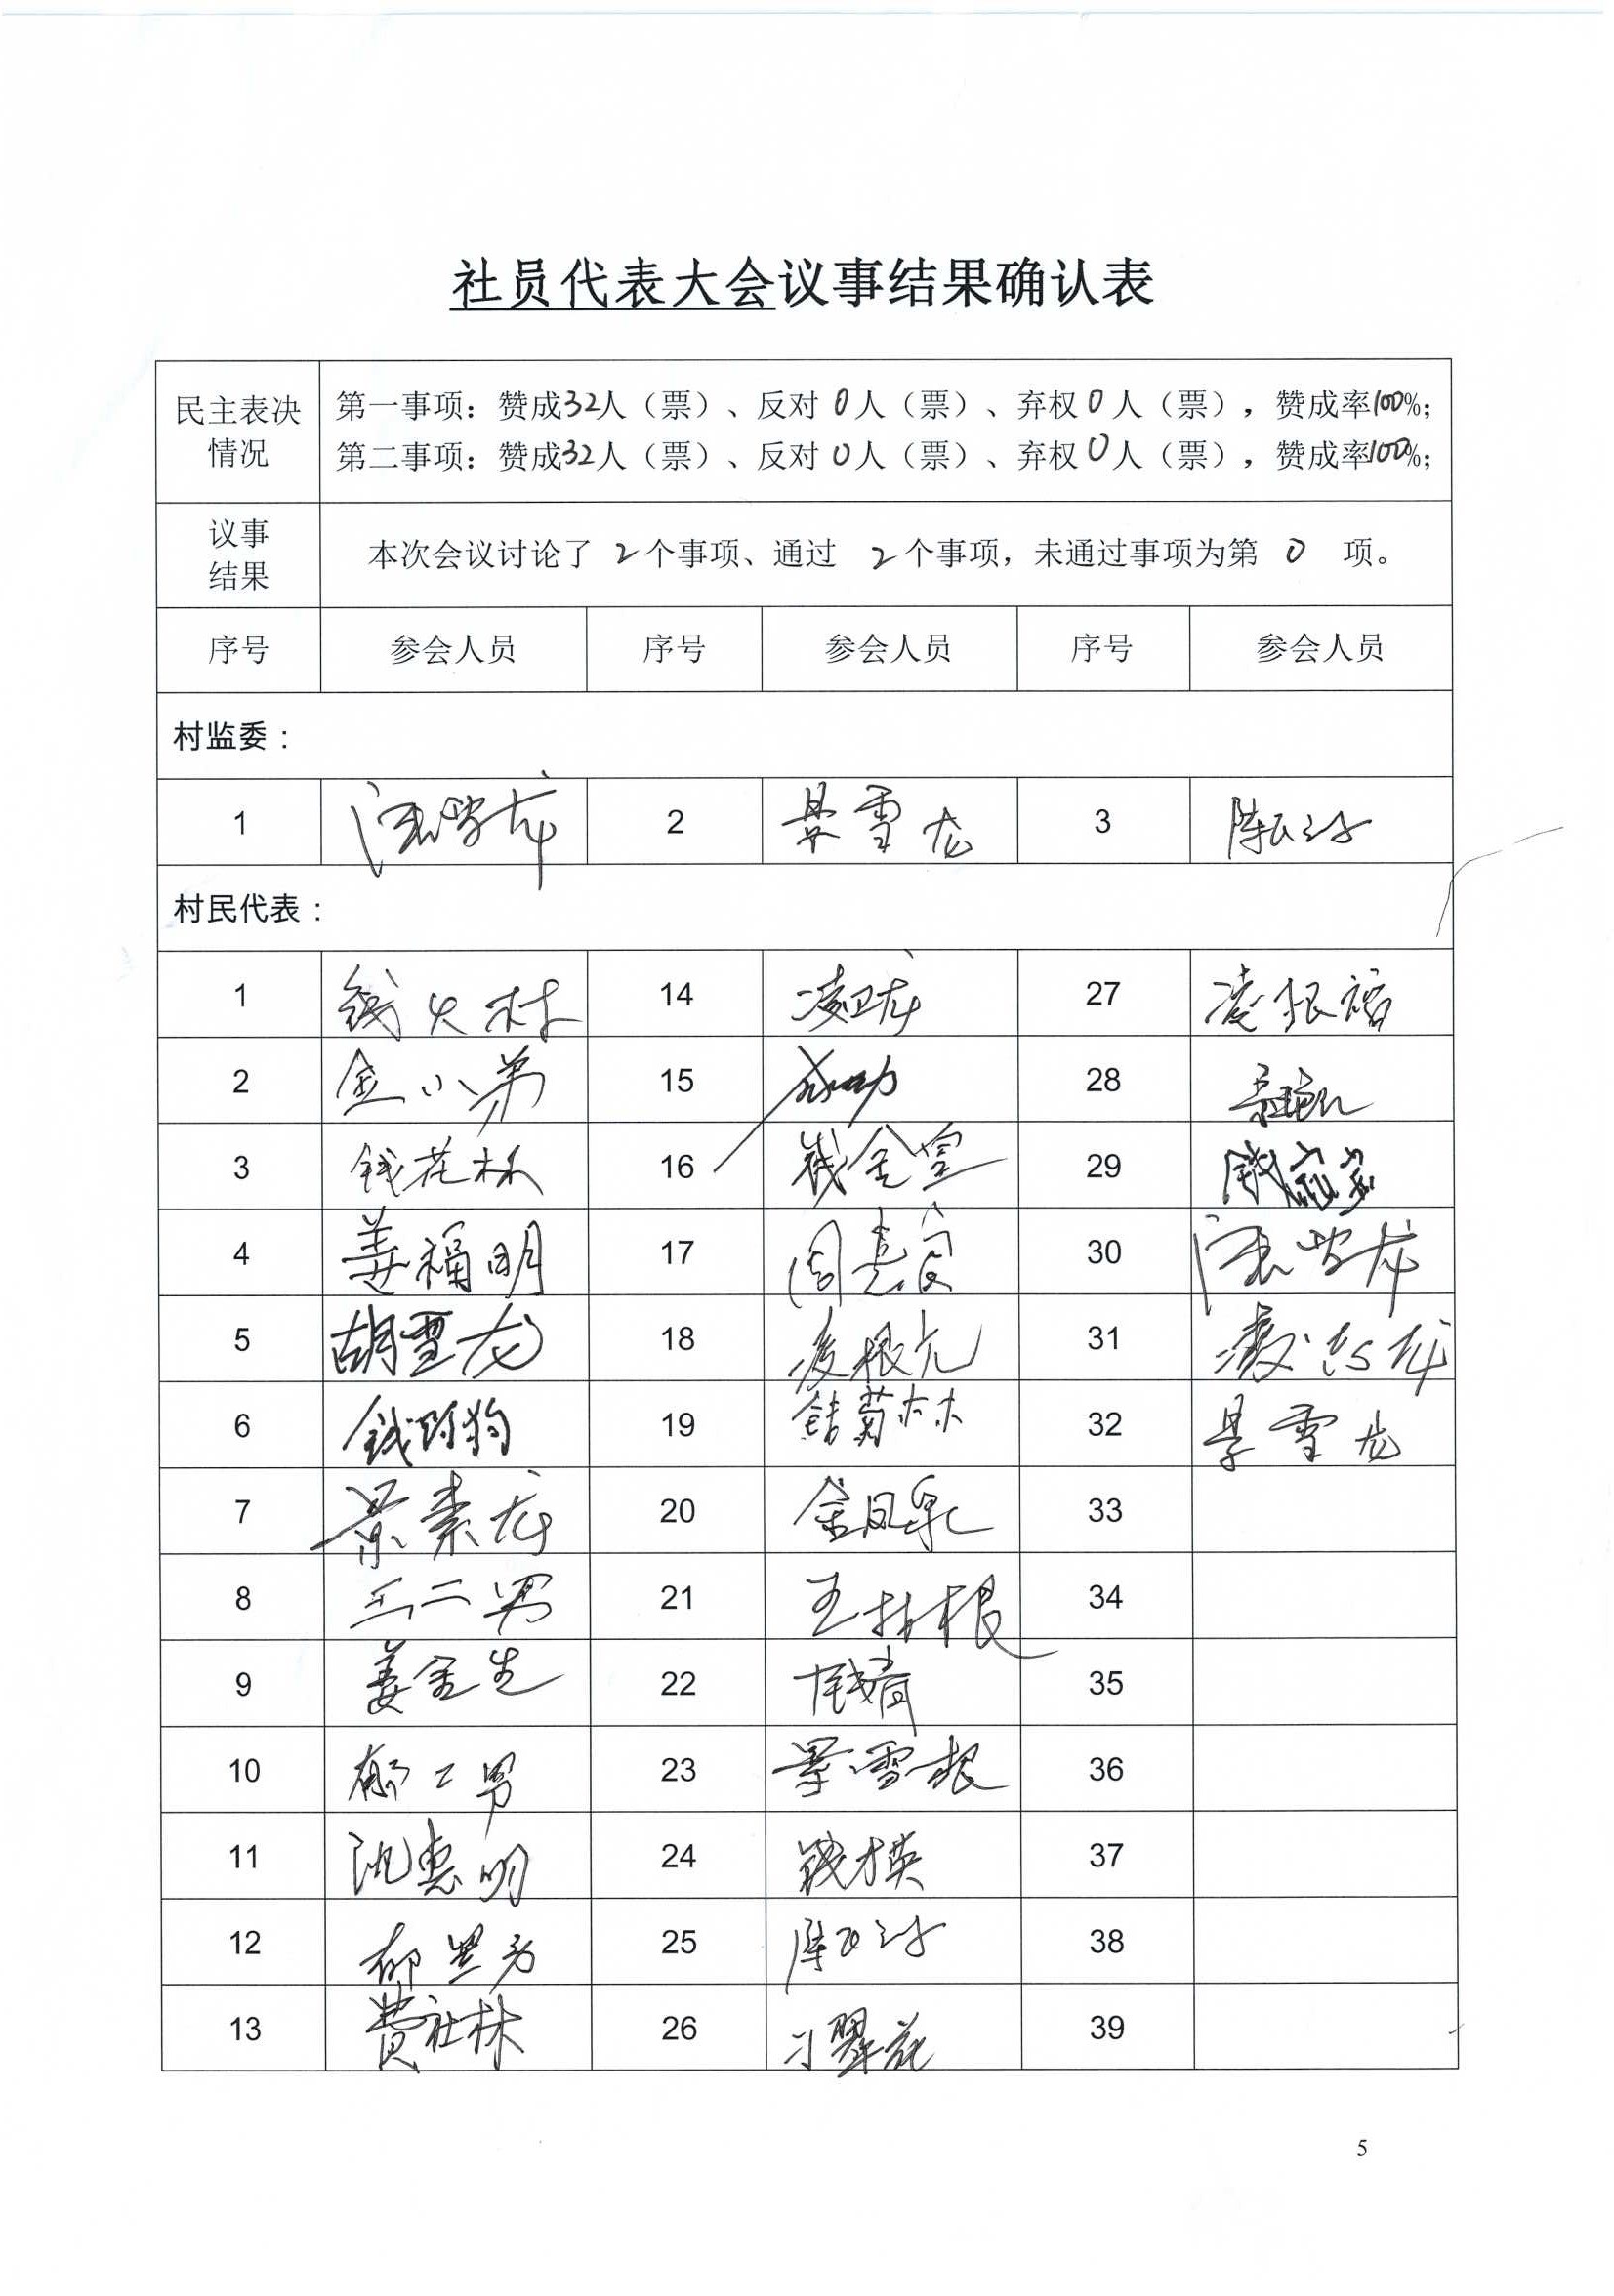 社员代表大会议事结果确认表
民主表决情况
第一事项：赞成32人（票）、反对0人（票）、弃权0人（票），赞成率100%；
第二事项：赞成32人（票）、反对0人（票）、弃权0人（票），赞成率100%；
议事结果
本次会议讨论了 2个事项、通过 2个事项，未通过事项为第 0 项。
序号 参会人员 序号 参会人员 序号 参会人员
村监委：
1 2 景雪龙 3
村民代表：
1 钱火林 14 凌卫龙 27 凌根福
2 金小弟 15 28
3 钱花林 16 钱金宝 29
4 姜福明 17 周惠良 30
5 胡雪龙 18 31
6 19 钱菊林 32 景雪龙
7 景素龙 20 金凤泉 33
8 王二男 21 王林根 34
9 姜金生 22 钱青 35
10 郁二男 23 景雪根 36
11 沈惠明 24 钱才英 37
12 25 38
13 费社林 26 刁翠花 39
5